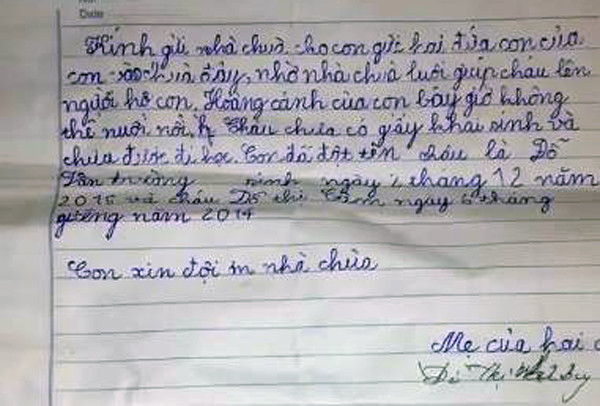 Date
Kính gửi nhà chùa cho con gửi hai đứa con của
con vào chùa ở đây, nhờ nhà chùa nuôi giúp cháu lên
người hộ con. Hoàng cảnh của con bây giờ không
thể nuôi nổi. Cháu chưa có giấy khai sinh và
chưa được đi học. Con đã đặt tên cháu là Đỗ
Văn trường sinh ngày tháng 12 năm
2015 và cháu Đỗ thị ngày 6 tháng
giêng năm 2014
Con xin đội ơn nhà chùa
Mẹ của hai
Thị